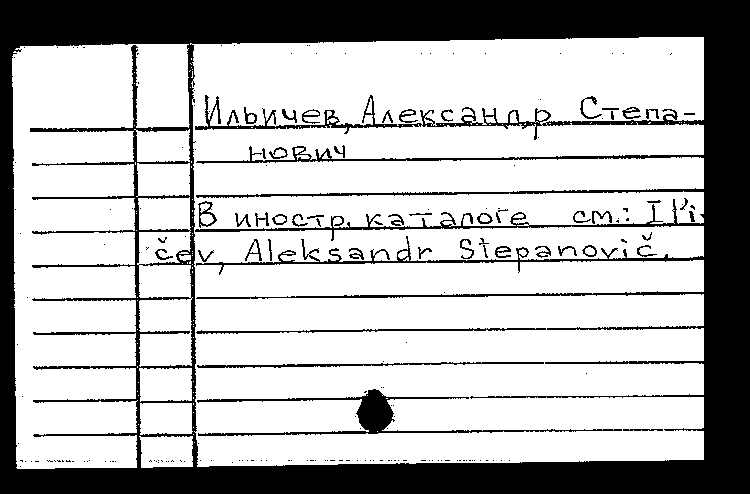 Ильичев, Александр Степа-
нович
В иностр. каталоге см.: Il'i-
čev, Aleksandr Stepanovič.